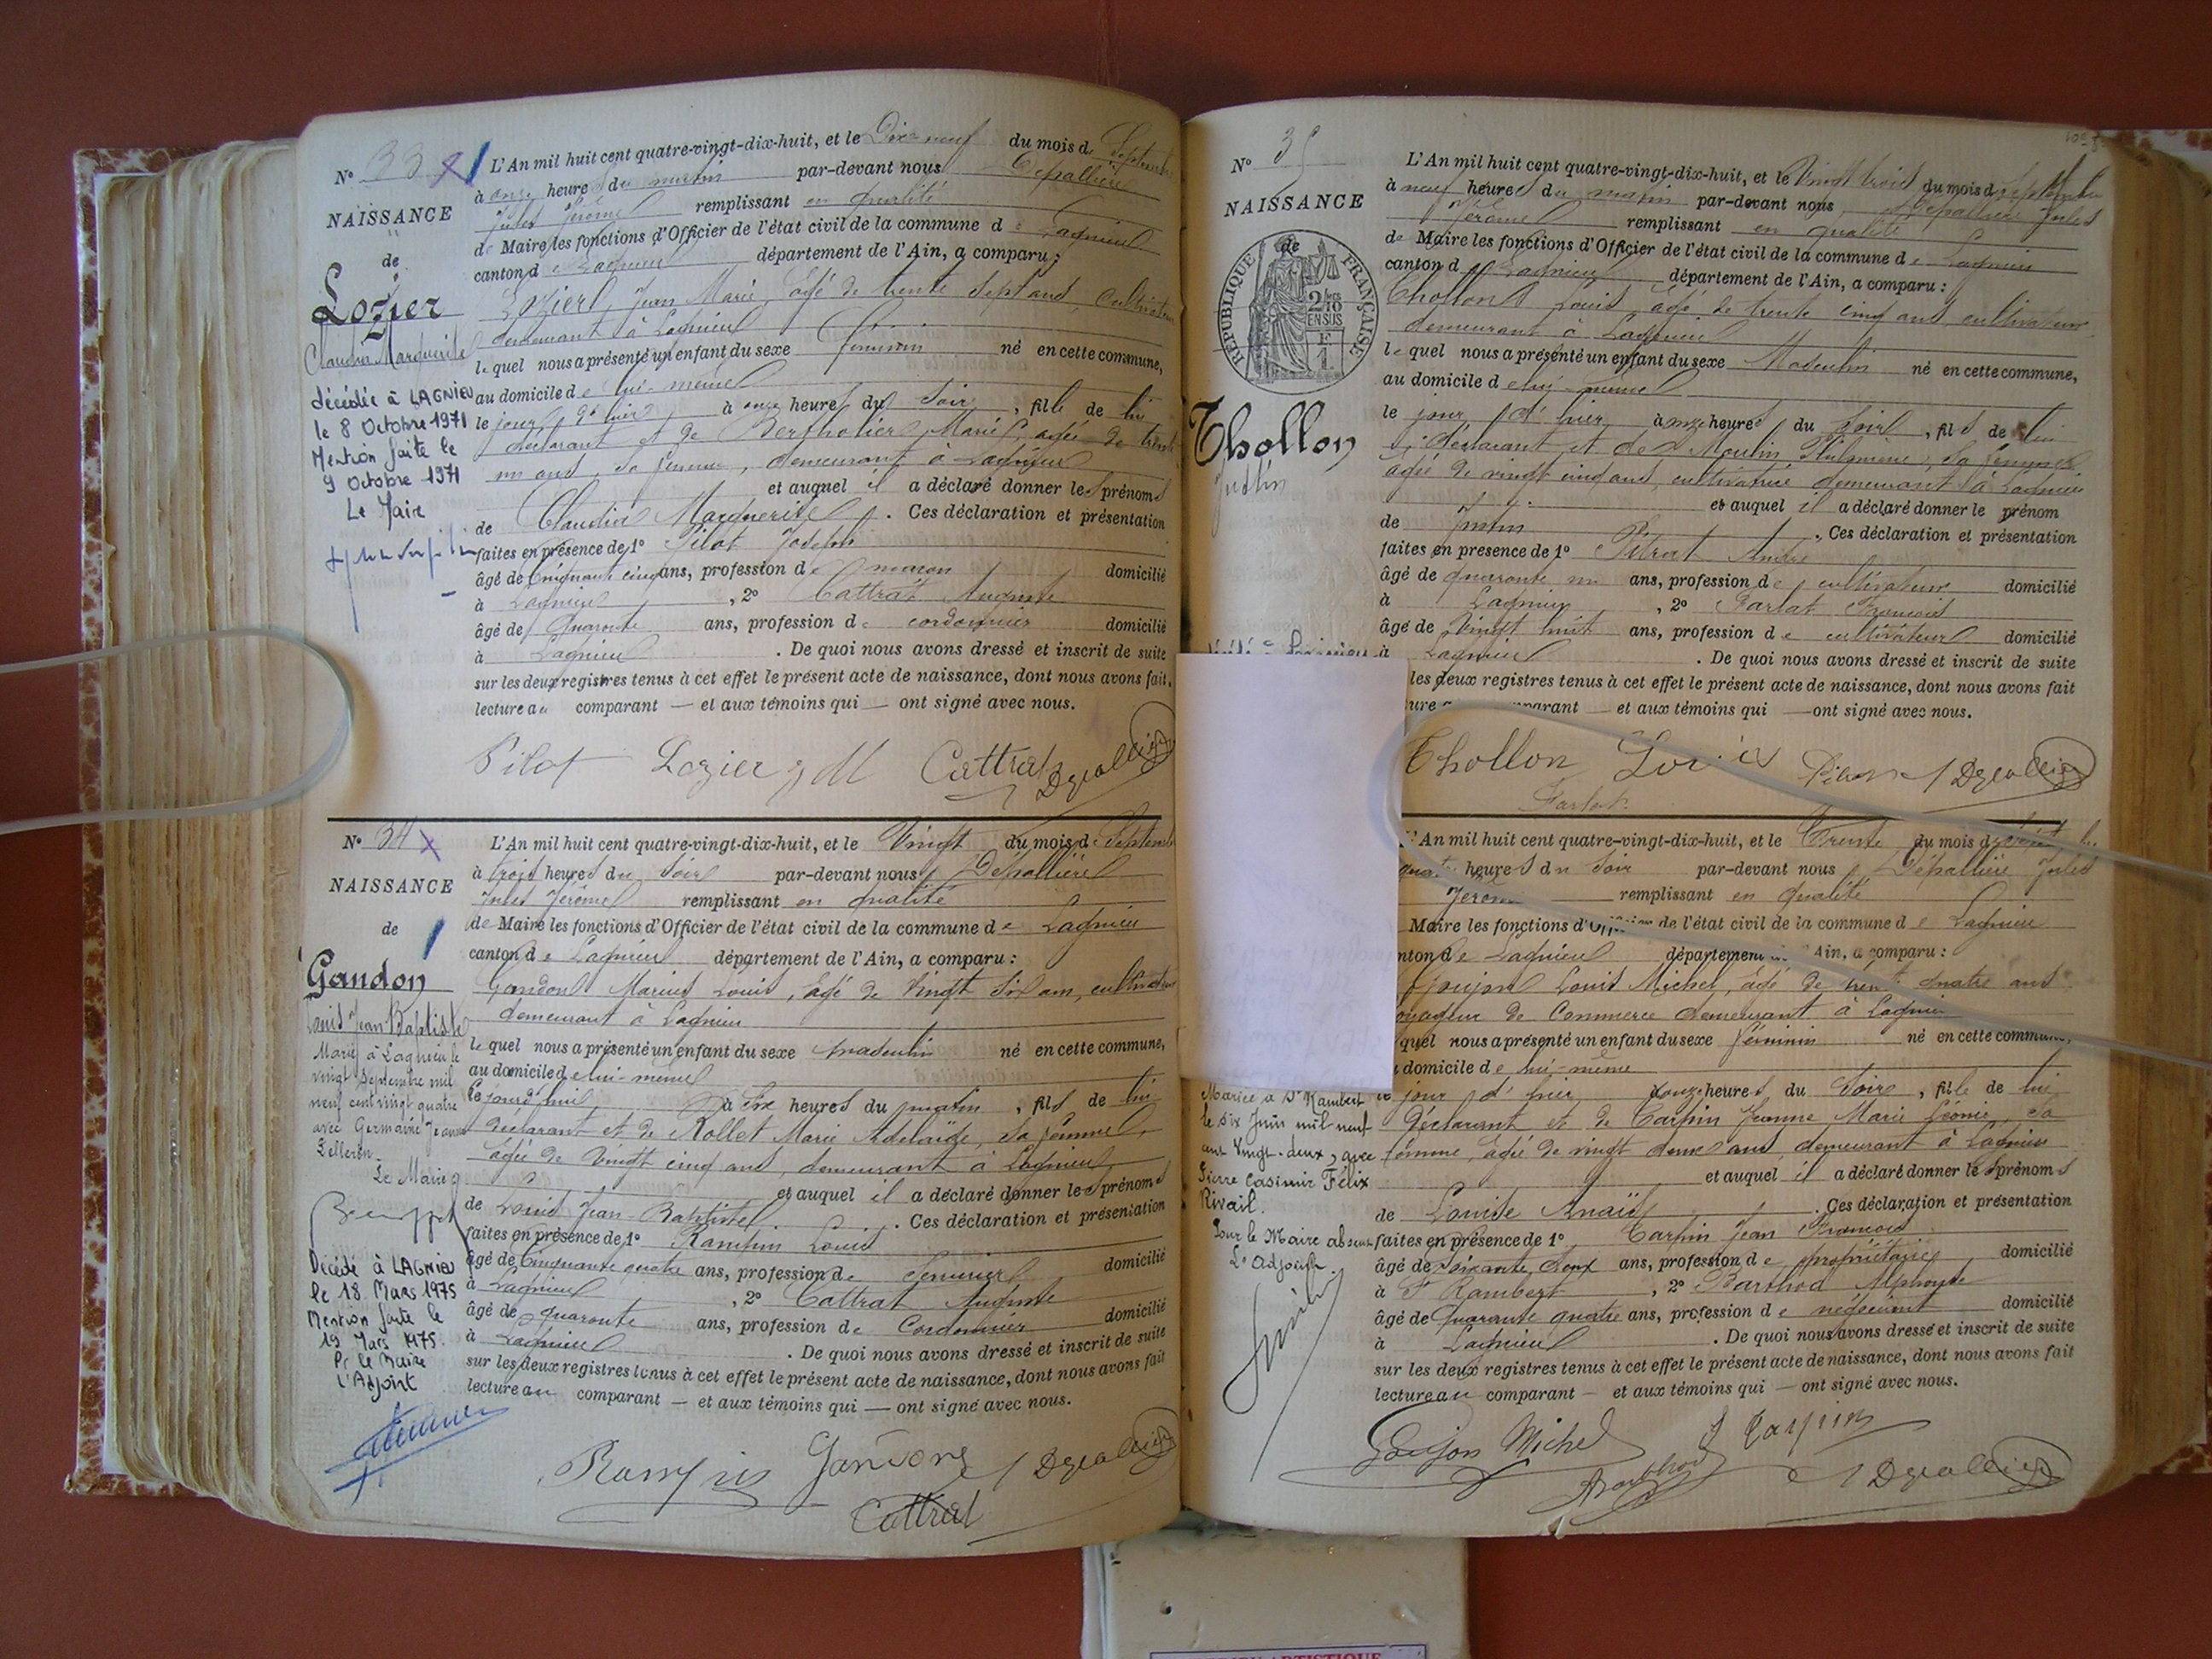 N° 33
NAISSANCE
de
Lozier
Claudia Marguerite
décédée à LAGNIEU
le 8 Octobre 1971
Mention faite le
9 Octobre 1971
Le Maire
L'An mil huit cent quatre-vingt-dix-huit, et le Dix-neuf du mois de Septembre
à onze heures du matin par-devant nous Dépallière
Jules Jérôme remplissant en qualité
de Maire les fonctions d'Officier de l'état civil de la commune de Lagnieu
canton de Lagnieu département de l'Ain, a comparu :
Lozier Jean Marie, âgé de trente sept ans, cultivateur
demeurant à Lagnieu
lequel nous a présenté un enfant du sexe féminin né en cette commune,
au domicile de lui-même
le jour d'hier à onze heures du soir, fille de lui
déclarant et de Bertholier Marie, âgée de trente
un ans, sa femme, demeurant à Lagnieu
et auquel il a déclaré donner les prénoms
de Claudia Marguerite. Ces déclaration et présentation
faites en présence de 1° Pilot Joseph
âgé de Cinquante cinq ans, profession de maçon domicilié
à Lagnieu, 2° Cattrat Auguste
âgé de Quarante ans, profession de cordonnier domicilié
à Lagnieu. De quoi nous avons dressé et inscrit de suite
sur les deux registres tenus à cet effet le présent acte de naissance, dont nous avons fait
lecture au comparant — et aux témoins qui — ont signé avec nous.
Pilot Lozier J M Cattrat Dépallière
N° 34
NAISSANCE
de
Gandon
Louis Jean Baptiste
Marié à Lagnieu le
vingt Septembre mil
neuf cent vingt quatre
avec Germaine Jeanne
Le Maire
Décédé à LAGNIEU
le 18 Mars 1975
Mention faite le
19 Mars 1975
Pr le Maire
L'Adjoint
L'An mil huit cent quatre-vingt-dix-huit, et le Vingt du mois de Septembre
à trois heures du Soir par-devant nous Dépallière
Jules Jérôme remplissant en qualité
de Maire les fonctions d'Officier de l'état civil de la commune de Lagnieu
canton de Lagnieu département de l'Ain, a comparu :
Gandon Marius Louis, âgé de Vingt Six ans, cultivateur
demeurant à Lagnieu
lequel nous a présenté un enfant du sexe masculin né en cette commune,
au domicile de lui-même
le jourd'hui à Six heures du matin, fils de lui
déclarant et de Rollet Marie Adelaïde, sa femme,
âgée de Vingt cinq ans, demeurant à Lagnieu
et auquel il a déclaré donner les prénoms
de Louis Jean-Baptiste. Ces déclaration et présentation
faites en présence de 1° Rampin Louis
âgé de Cinquante quatre ans, profession de Serrurier domicilié
à Lagnieu, 2° Cattrat Auguste
âgé de quarante ans, profession de Cordonnier domicilié
à Lagnieu. De quoi nous avons dressé et inscrit de suite
sur les deux registres tenus à cet effet le présent acte de naissance, dont nous avons fait
lecture au comparant — et aux témoins qui — ont signé avec nous.
Rampin Gandon Dépallière
Cattrat
N° 35
NAISSANCE
de
RÉPUBLIQUE FRANÇAISE
2/10
EN SUS
Thollon
Justin
L'An mil huit cent quatre-vingt-dix-huit, et le Vingt trois du mois de Septembre
à neuf heures du matin par-devant nous Dépallière Jules
Jérôme remplissant en qualité
de Maire les fonctions d'Officier de l'état civil de la commune de Lagnieu
canton de Lagnieu département de l'Ain, a comparu :
Thollon Louis, âgé de trente cinq ans, cultivateur
demeurant à Lagnieu
lequel nous a présenté un enfant du sexe Masculin né en cette commune,
au domicile de lui-même
le jour d'hier à onze heures du Soir, fils de lui
déclarant et de Moulin Philomène, sa femme,
âgée de vingt cinq ans, cultivatrice demeurant à Lagnieu
et auquel il a déclaré donner le prénom
de Justin. Ces déclaration et présentation
faites en présence de 1° Pitrat André
âgé de quarante un ans, profession de cultivateur domicilié
à Lagnieu, 2° Farlat François
âgé de Vingt huit ans, profession de cultivateur domicilié
à Lagnieu. De quoi nous avons dressé et inscrit de suite
les deux registres tenus à cet effet le présent acte de naissance, dont nous avons fait
comparant — et aux témoins qui — ont signé avec nous.
Thollon Louis Dépallière
Farlat
Mariée à St Rambert
le six Juin mil neuf
cent Vingt-deux, avec
Pierre Casimir Félix
Rivail.
Pour le Maire absent
L'adjoint
L'An mil huit cent quatre-vingt-dix-huit, et le Trente du mois de
heures du Soir par-devant nous Dépallière Jules
Jérôme remplissant en qualité
Maire les fonctions d'Officier de l'état civil de la commune de Lagnieu
canton de Lagnieu département de l'Ain, a comparu :
Goujon Louis Michel, âgé de trente quatre ans
voyageur de Commerce demeurant à Lagnieu
quel nous a présenté un enfant du sexe féminin né en cette commune,
domicile de lui-même
le jour d'hier à onze heures du Soir, fille de lui
déclarant et de Carpin Jeanne Marie Léonie, sa
femme, âgée de vingt deux ans, demeurant à Lagnieu
et auquel il a déclaré donner les prénoms
de Louise Anaïs. Ces déclaration et présentation
faites en présence de 1° Carpin Jean François
âgé de soixante deux ans, profession de propriétaire domicilié
à St Rambert, 2° Barthod Alphonse
âgé de Quarante quatre ans, profession de négociant domicilié
à Lagnieu. De quoi nous avons dressé et inscrit de suite
sur les deux registres tenus à cet effet le présent acte de naissance, dont nous avons fait
lecture au comparant — et aux témoins qui — ont signé avec nous.
Goujon Michel J Carpin
Barthod Dépallière